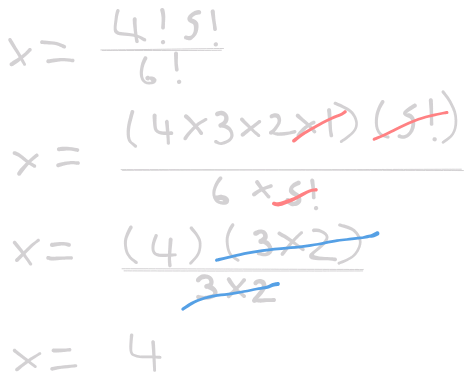 x = 4! 5! / 6!
x = (4 × 3 × 2 × 1) (5!) / 6 × 5!
x = (4) (3 × 2) / 3 × 2
x = 4